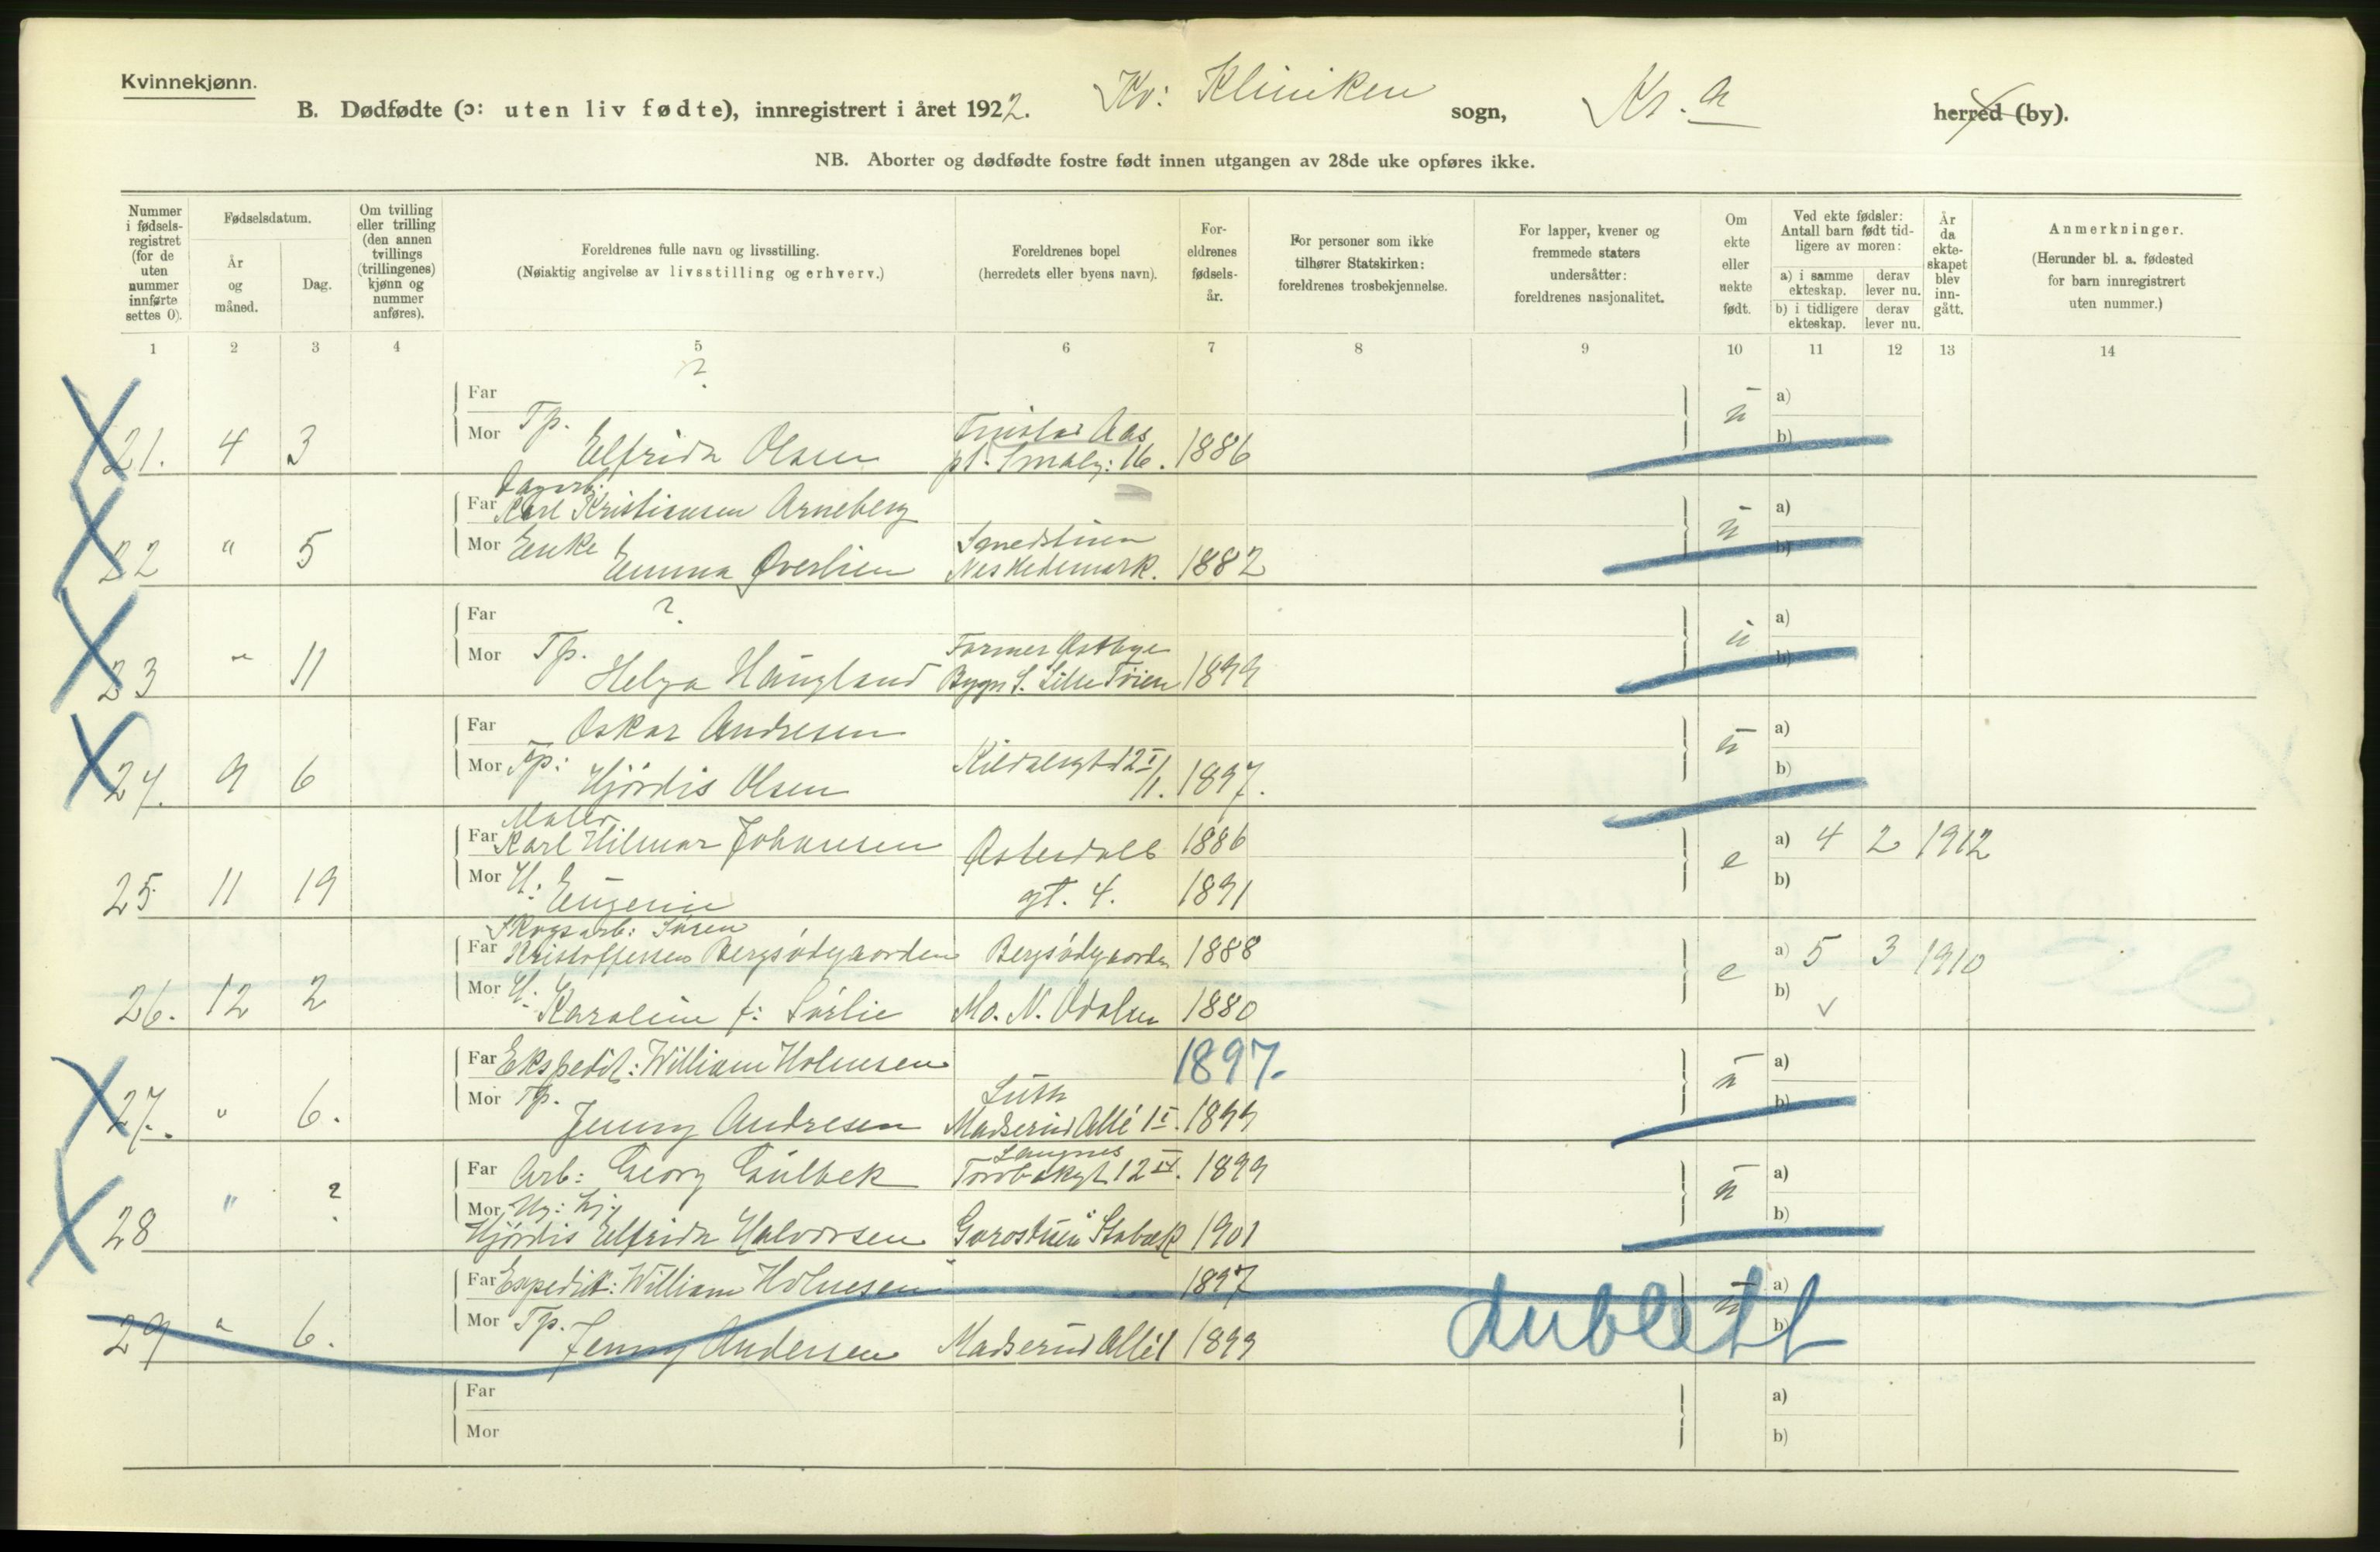 Kvinnekjønn.
B. Dødfødte (ɔ: uten liv fødte), innregistrert i året 1922. Kv: Kliniken sogn, Kr.a herred (by).
NB. Aborter og dødfødte fostre født innen utgangen av 28de uke opføres ikke.
Nummer i fødsels-registret (for de uten nummer innførte settes 0).
Fødselsdatum.
År og måned.
Dag.
Om tvilling eller trilling (den annen tvillings (trillingenes) kjønn og nummer anføres).
Foreldrenes fulle navn og livsstilling.
(Nøiaktig angivelse av livsstilling og erhverv.)
Foreldrenes bopel
(herredets eller byens navn).
For-eldrenes fødsels-år.
For personer som ikke tilhører Statskirken: foreldrenes trosbekjennelse.
For lapper, kvener og fremmede staters undersåtter: foreldrenes nasjonalitet.
Om ekte eller uekte født.
Ved ekte fødsler: Antall barn født tid-ligere av moren:
a) i samme ekteskap.
derav lever nu.
b) i tidligere ekteskap.
derav lever nu.
År da ekte-skapet blev inn-gått.
Anmerkninger.
(Herunder bl. a. fødested for barn innregistrert uten nummer.)
1 2 3 4 5 6 7 8 9 10 11 12 13 14
Far ? a)
21. 4 3 Mor Tp. Elfrida Olsen Aas pl. Smalg: 16. 1886 u b)
Far Dagarb: Karl Kristiansen Arneberg a)
22 " 5 Mor Enke Emma Øverlien Smedstuen Nes Hedemark. 1882 u b)
Far ? a)
23 " 11 Mor Tp. Helga Haugland Farmer Østbye Bygn S. Lille Tøien 1899 u b)
Far Oskar Andresen a)
24. 9 6 Mor Tp: Hjørdis Olsen 12 I/1. 1897. u b)
Far Maler Karl Hilmar Johansen Østerdals 1886 e a) 4 2 1912
25 11 19 Mor H. Eugenie gt. 4. 1891 b)
Far Skogsarb: Søren Kristoffersen Bergsødegaarden Bergsødgaarden 1888 e a) 5 3 1910
26. 12 2 Mor H. Karoline f: Sørlie Mo. N. Odalen 1880 b) ✓
Far Ekspedit: William Holmesen 1897. a)
27. " 6. Mor Tp. Jenny Andresen Luth Madserud Allé 1 I. 1899 u b)
Far Arb: Georg Gulbek Langnes Torvbakgt 12 IV. 1899 a)
28 " ? Mor Hjørdis Elfrida Halvorsen Gorostuen Stabæk 1901 u b)
Far Expedit: William Holmesen 1897 a)
29 " 6. Mor Tp. Jenny Andersen Madserud Allé 1 1899 u b) dublett
Far a)
Mor b)